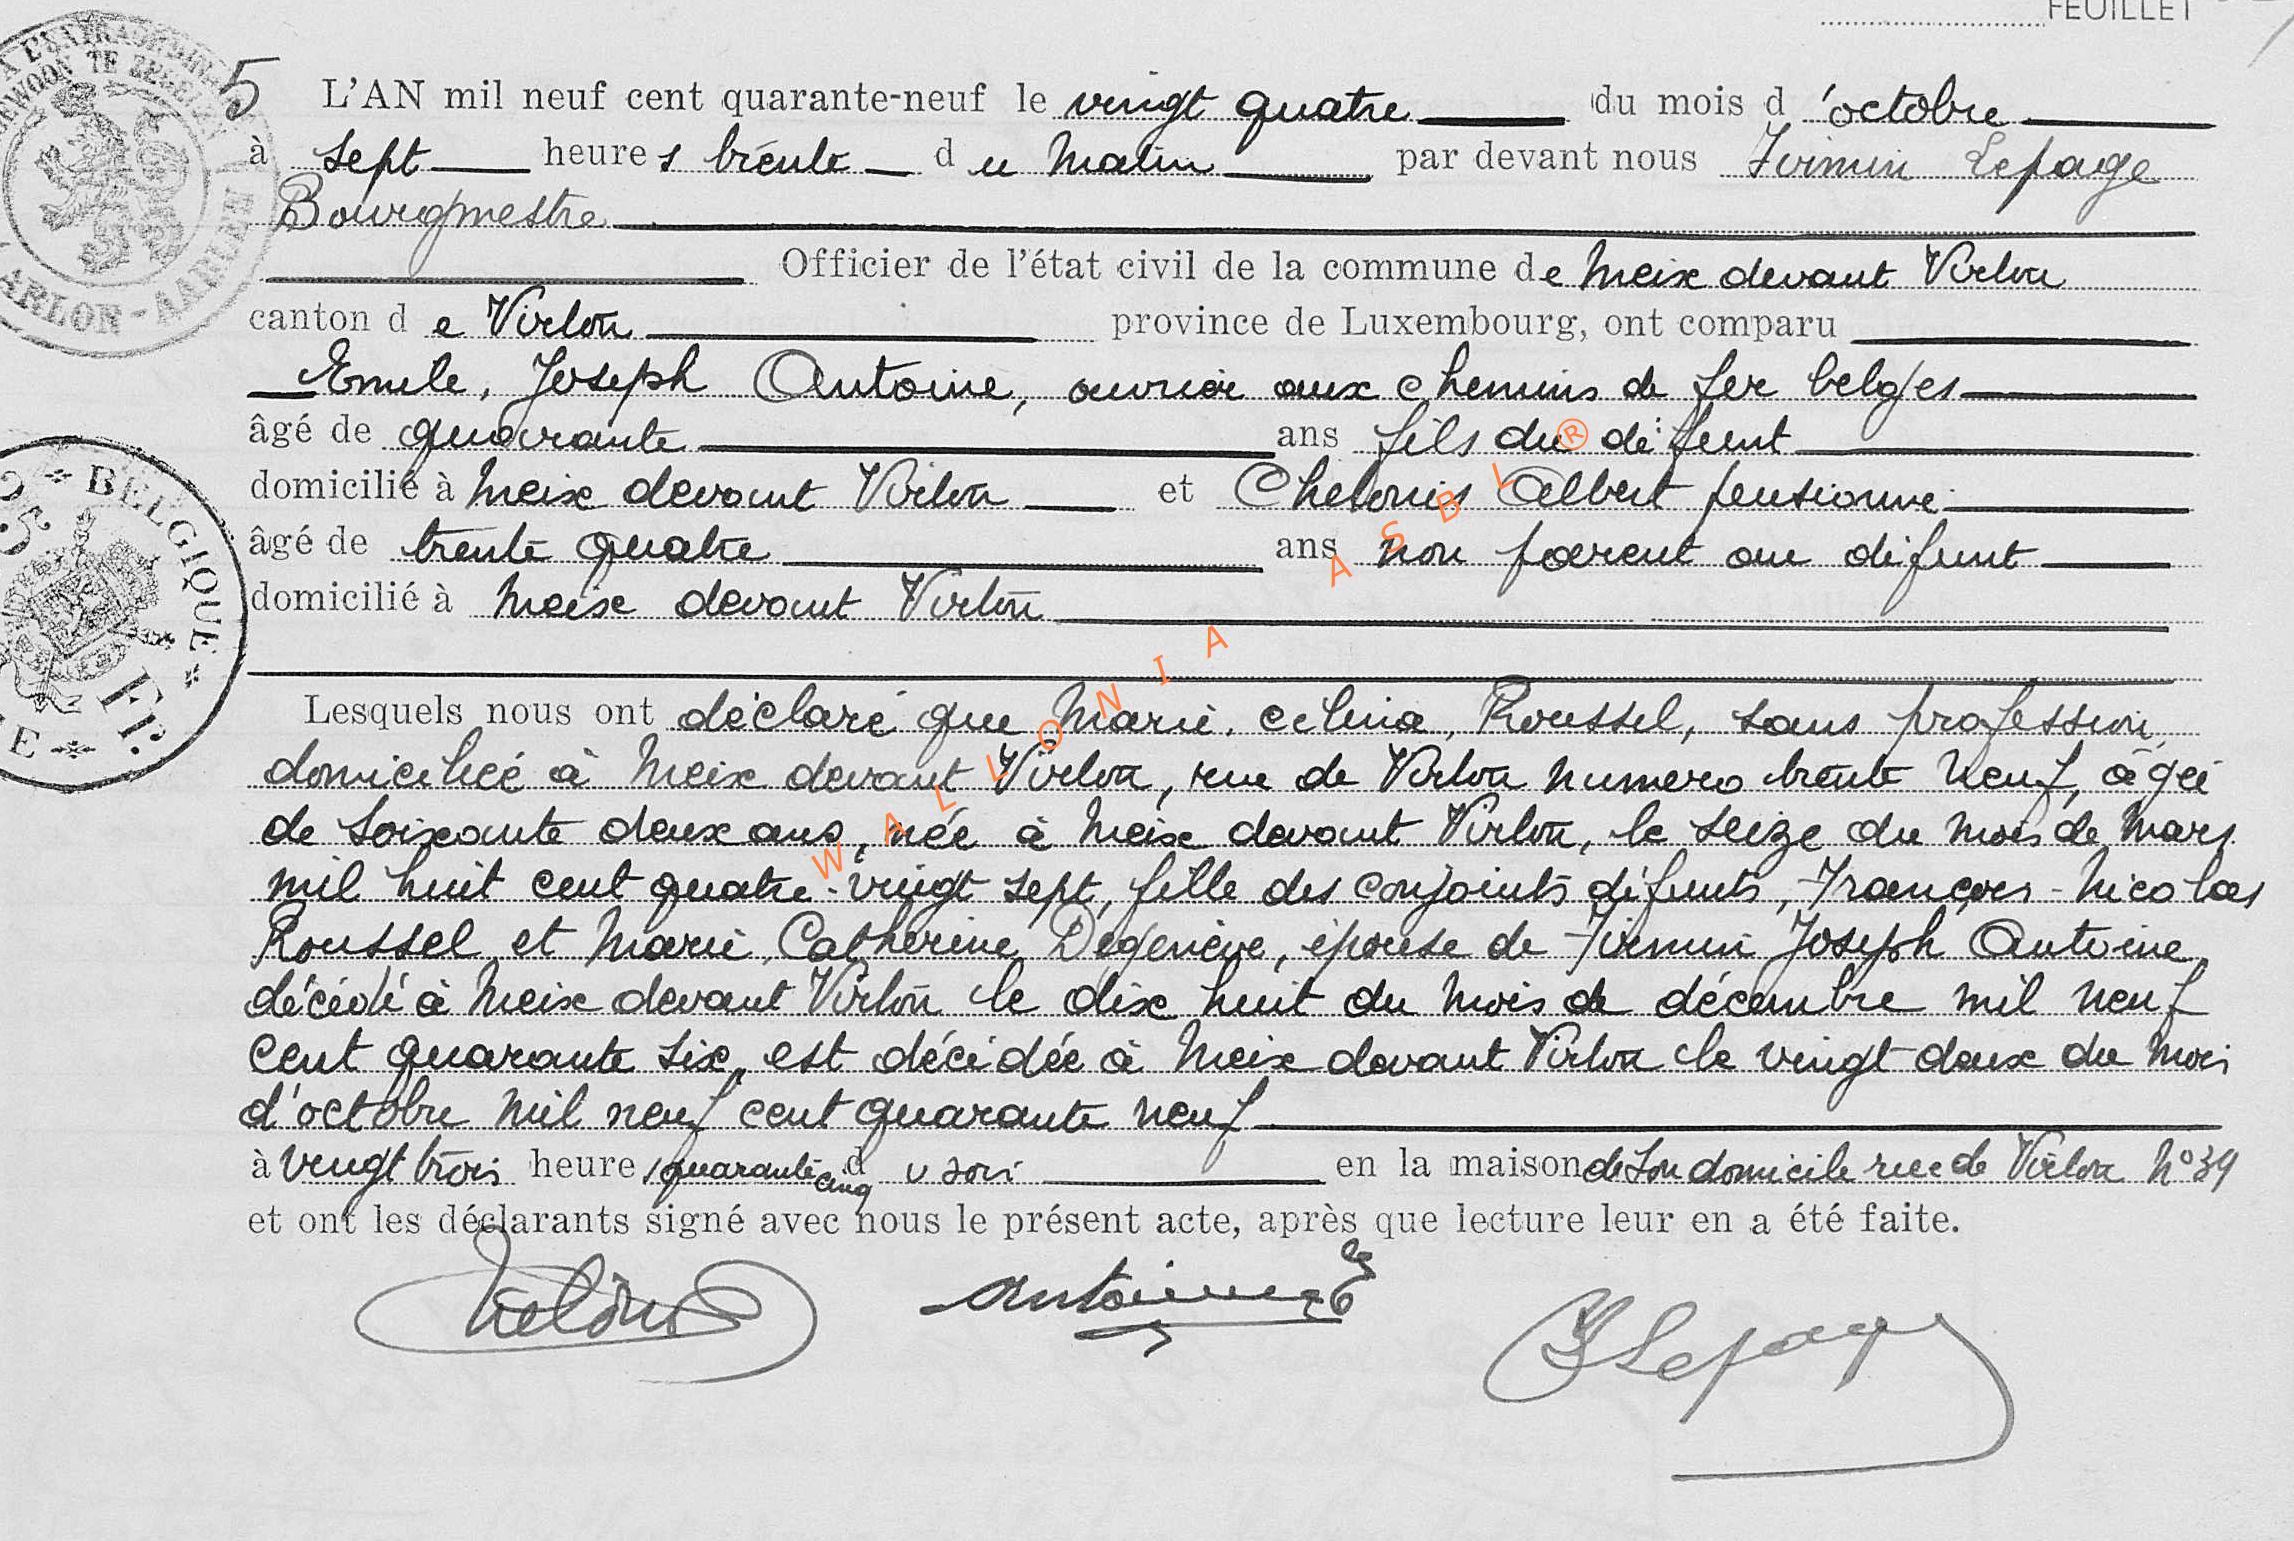 FEUILLET
5
L'AN mil neuf cent quarante-neuf le vingt quatre du mois d'octobre
à sept heures trente du matin par devant nous Firmin Lepage
Bourgmestre
Officier de l'état civil de la commune de Meix devant Virton
canton de Virton province de Luxembourg, ont comparu
Emile, Joseph Antoine, ouvrier aux chemins de fer belges
âgé de quarante ans fils du défunt
domicilié à Meix devant Virton et Albert pensionné
âgé de trente quatre ans non parent au défunt
domicilié à Meix devant Virton
Lesquels nous ont déclaré que Marie, Celina, Roussel, sans profession,
domiciliée à Meix devant Virton, rue de Virton numero trente neuf, âgée
de soixante deux ans, née à Meix devant Virton, le seize du mois de Mars
mil huit cent quatre-vingt sept, fille des conjoints défunts, François-Nicolas
Roussel et Marie, Catherine Degenève, épouse de Firmin Joseph Antoine
décédé à Meix devant Virton le dix huit du mois de décembre mil neuf
cent quarante six, est décédée à Meix devant Virton le vingt deux du mois
d'octobre mil neuf cent quarante neuf
à vingt trois heures quarante cinq du soir en la maison de son domicile rue de Virton N° 39
et ont les déclarants signé avec nous le présent acte, après que lecture leur en a été faite.
Antoine E
F Lepage
ARLON - AARLEN
BELGIQUE
Fr.
WALLONIA ASBL ®